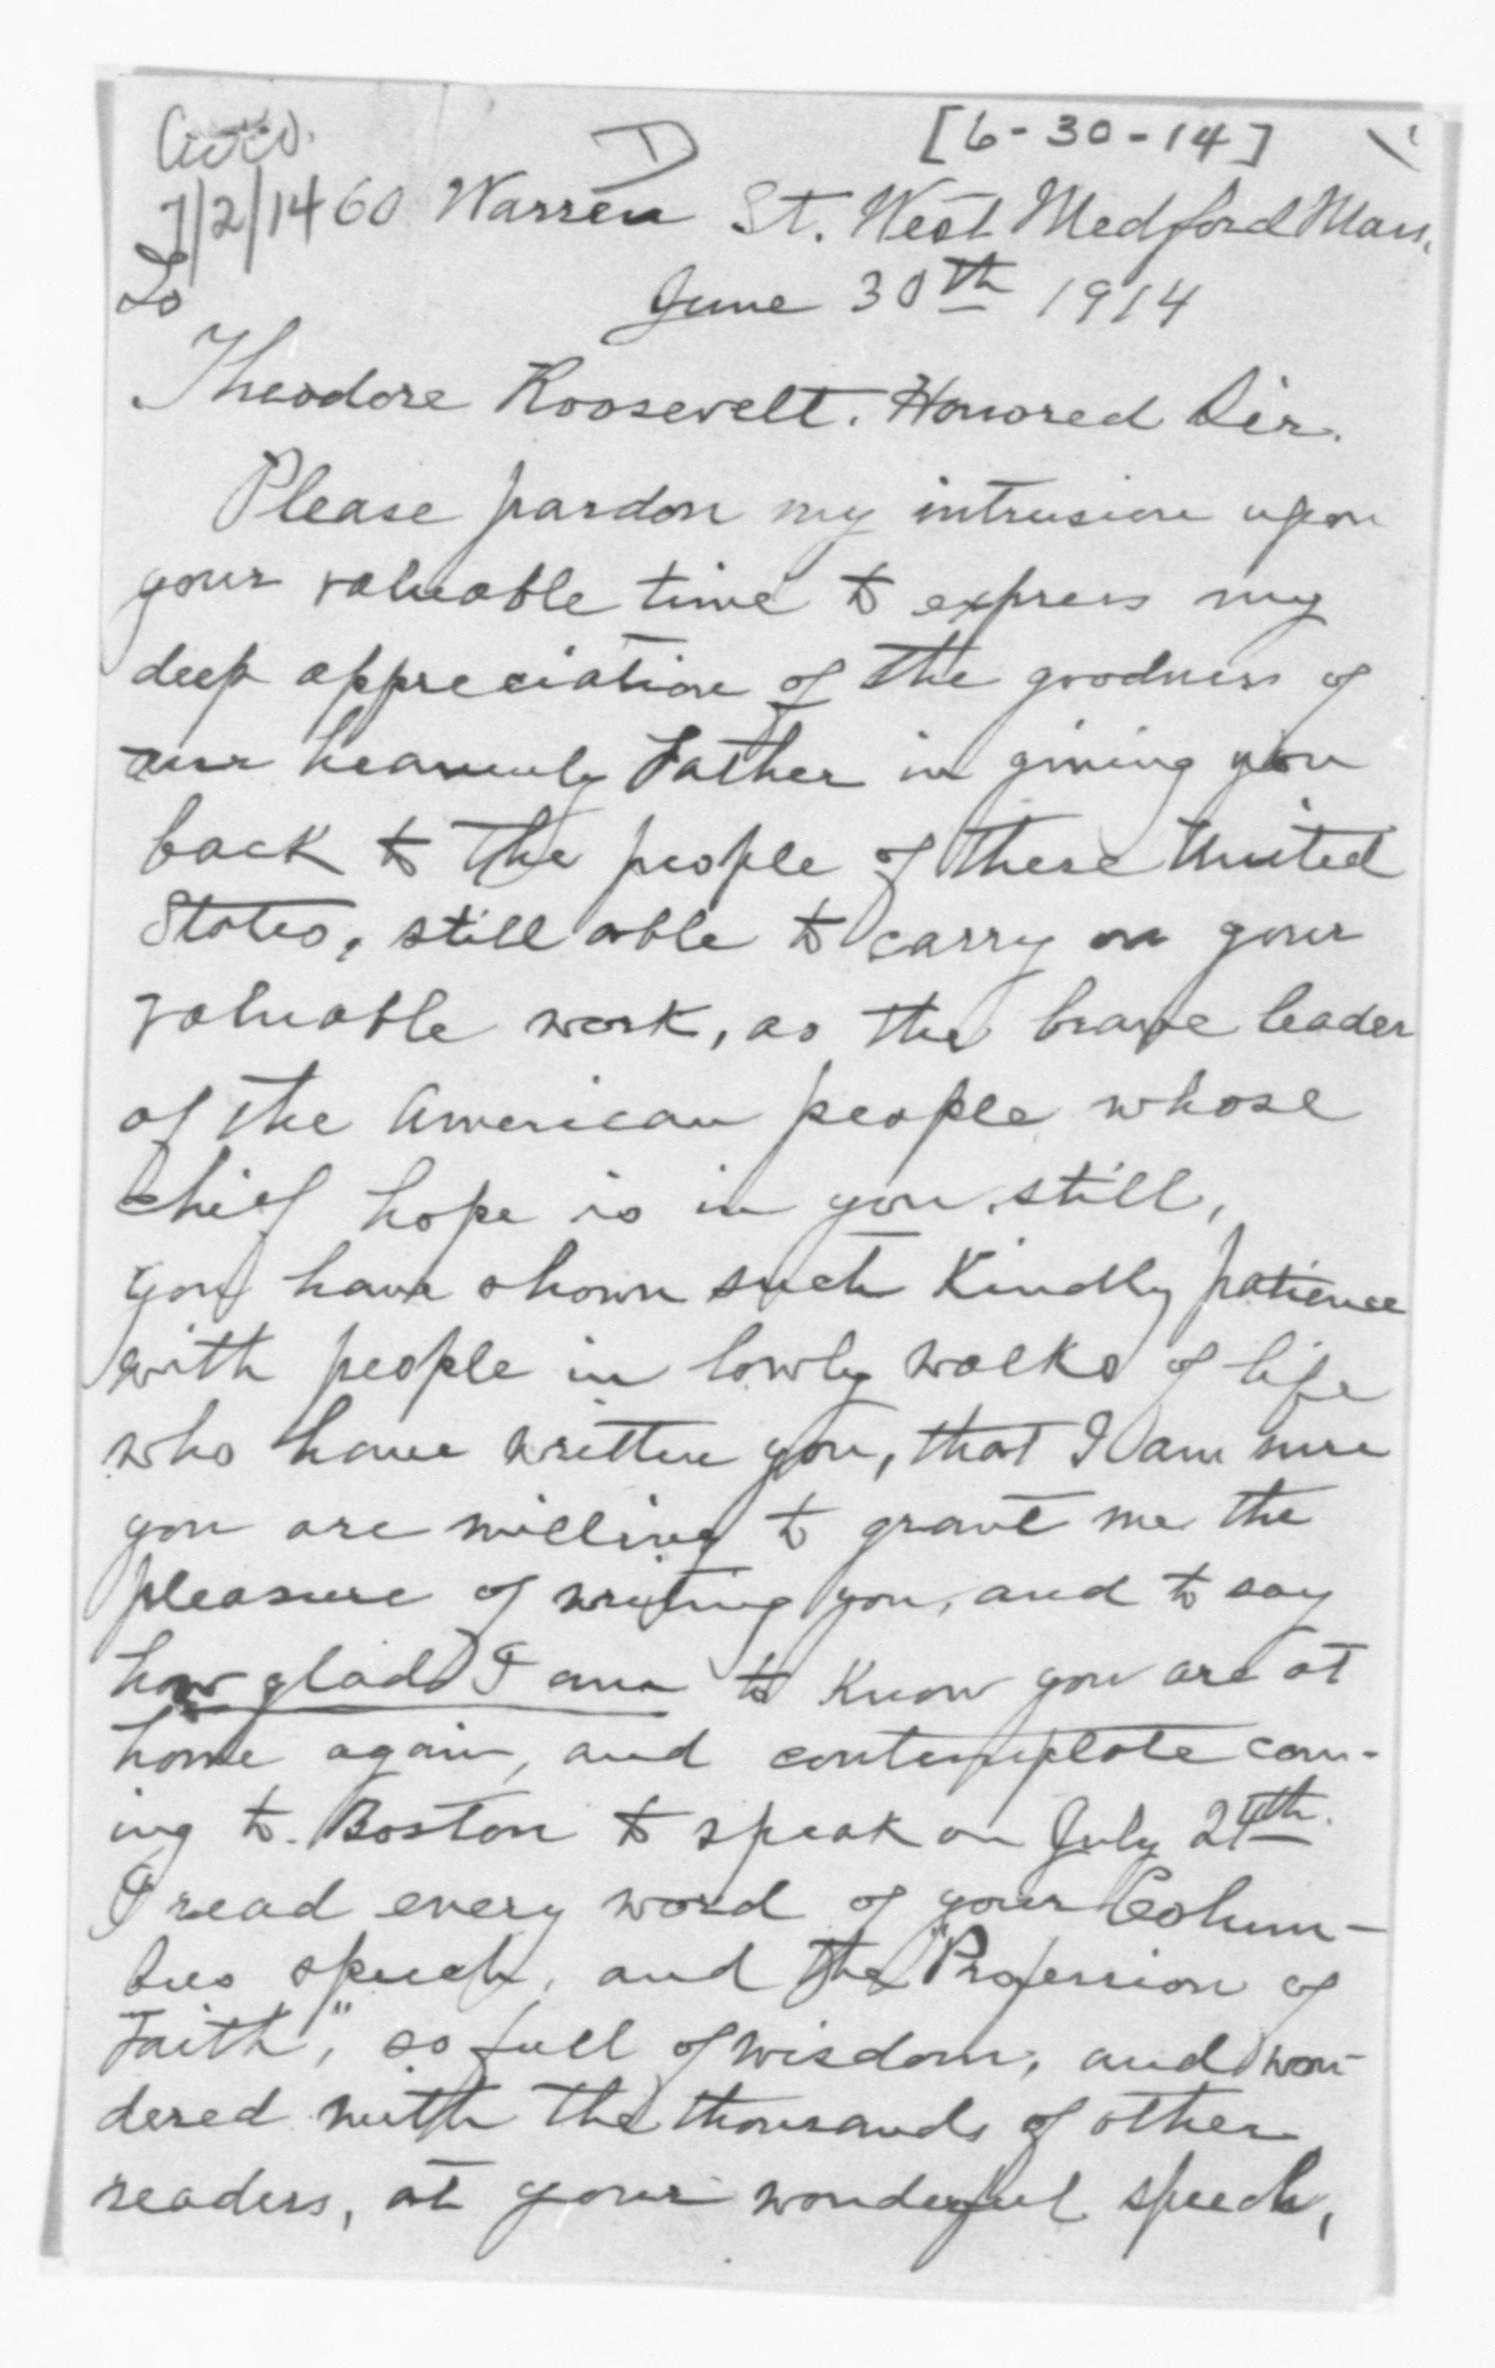 [6-30-14]
7/2/14 60 Warren St. West Medford Mass.
To June 30th 1914
Theodore Roosevelt. Honored Sir.
Please pardon my intrusion upon
your valuable time to express my
deep appreciation of the goodness of
our heavenly Father in giving you
back to the people of these United
States, still able to carry on your
valuable work, as the brave leader
of the American people whose
chief hope is in you still,
you have shown such kindly patience
with people in lowly walks of life
who have written you, that I am sure
you are willing to grant me the
pleasure of writing you, and to say
how glad I am to know you are at
home again, and contemplate com-
ing to Boston to speak on July 24th.
I read every word of your Colum-
bus speech, and the "Profession of
Faith", so full of wisdom, and won-
dered with the thousands of other
readers, at your wonderful speech,